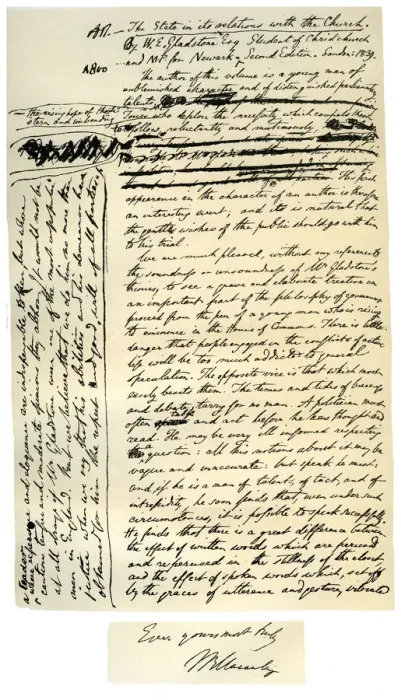 Art. — The State in its relations with the Church.
By W. E. Gladstone Esq. Student of Christ church
and M.P. for Newark. Second Edition. London: 1839.
The author of this volume is a young man of
unblemished character and of distinguished parliamentary
talents,
— the rising hope of those
stern and unbending
Tories who
to follow, reluctantly and mutinously
The first
appearance in the character of an author is therefore
an interesting event; and it is natural that
the gentle wishes of the public should go with him
to his trial.
We are much pleased, without any reference to
the soundness or unsoundness of Mr Gladstone's
theories, to see a grave and elaborate treatise on
an important part of the philosophy of government
proceed from the pen of a young man who is rising
to eminence in the House of Commons. There is little
danger that people engaged in the conflicts of active
life will be too much addicted to general
speculation. The opposite vice is that which most
easily besets them. The times and tides of business
and debate tarry for no man. A politician must
often talk and act before he has thought and
read. He may be very ill informed respecting
a question: all his notions about it may be
vague and inaccurate: but speak he must;
and if he is a man of talents, of tact, and of
intrepidity, he soon finds that, even under such
circumstances, it is possible to speak successfully.
He finds that there is a great difference between
the effect of written words which are perused
and reperused in the stillness of the closet
and the effect of spoken words which, set off
by the graces of utterance and gesture, vibrate
a leader, whose
and eloquence are indispensable to them, but whose
cautious temper and moderate opinions they abhor. It would not be
at all strange if Mr Gladstone were one of the most unpopular
men in England. But we believe that we do him no more than
justice when we say that his abilities and his demeanour have
obtained for him the respect and good will of all parties.
Ever yours most truly
TBMacaulay